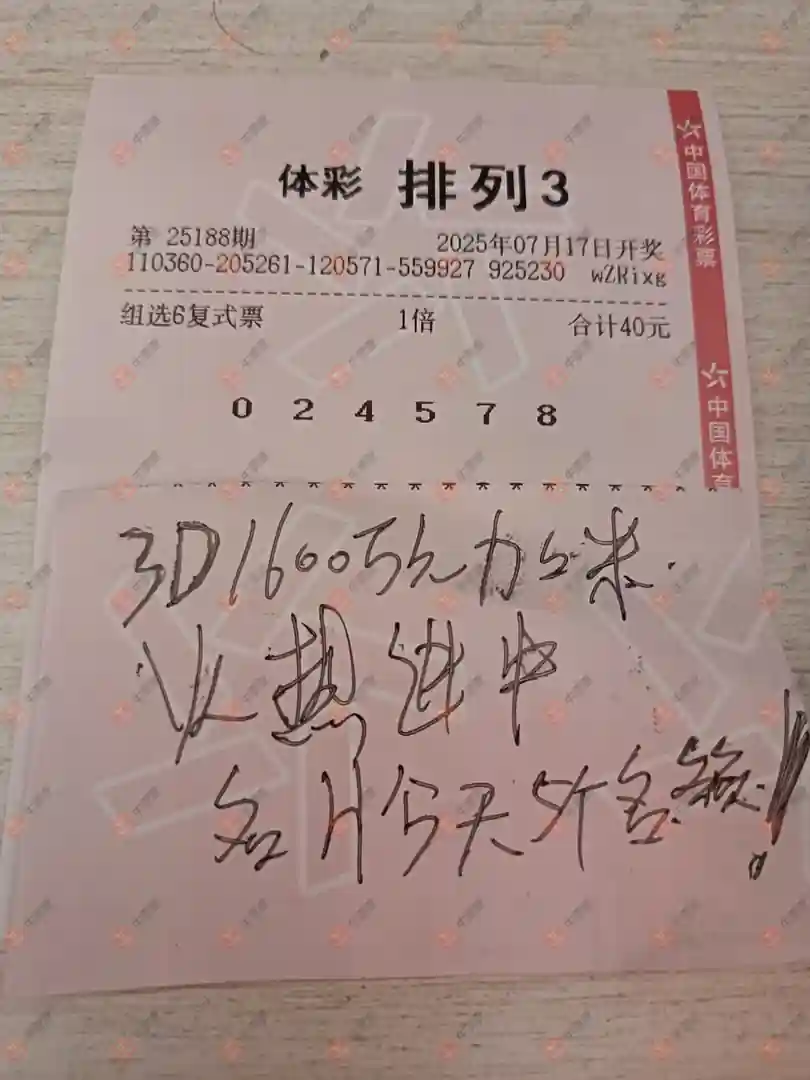 体彩 排列3
第 25188期 2025年07月17日开奖
110360-205261-120571-559927 925230 wZRixg
组选6复式票 1倍 合计40元
0 2 4 5 7 8
中国体育彩票
中国体育
3D1600万元加米.
火热继中
名片今天5个名额!!